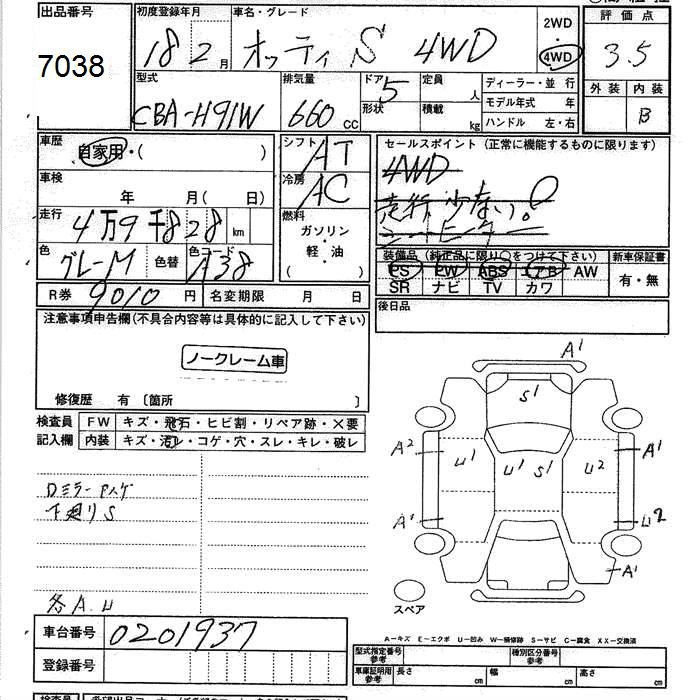 出品番号 初度登録年月 車名・グレード 2WD 評価点
7038 18 2月 オッティ S 4WD 4WD 3.5
型式 排気量 ドア 5 定員 人 ディーラー・並行 外装 内装
CBA-H91W 660cc 形状 積載 kg モデル年式 年 B
ハンドル 左・右
車歴 シフト AT セールスポイント (正常に機能するものに限ります)
自家用・( ) 4WD
車検 冷房 AC 走行少ない。
年 月( 日) シートヒーター
走行 4万9千828km 燃料
ガソリン・軽・油
( )
色 グレーM 色替 色コード A38 装備品 (純正品に限り○をつけて下さい) 新車保証書
PS PW ABS アB AW 有・無
R券 9010円 名変期限 月 日 SR ナビ TV カワ
注意事項申告欄(不具合内容等は具体的に記入して下さい) 後日品
ノークレーム車
修復歴 有 〔箇所 〕
検査員 FW キズ・飛石・ヒビ割・リペア跡・X要
記入欄 内装 キズ・汚レ・コゲ・穴・スレ・キレ・破レ
Dミラーアスケ
下廻りS
各A.U
A1
S1
A2 U1 U1 S1 U2 A1
A1 U2
A1
スペア
車台番号 0201937
登録番号
A-キズ E-エクボ U-凹み W-補修跡 S-サビ C-腐食 XX-交換済
型式指定番号 参考 種別区分番号 参考
車庫証明用 参考 長さ cm 幅 cm 高さ cm